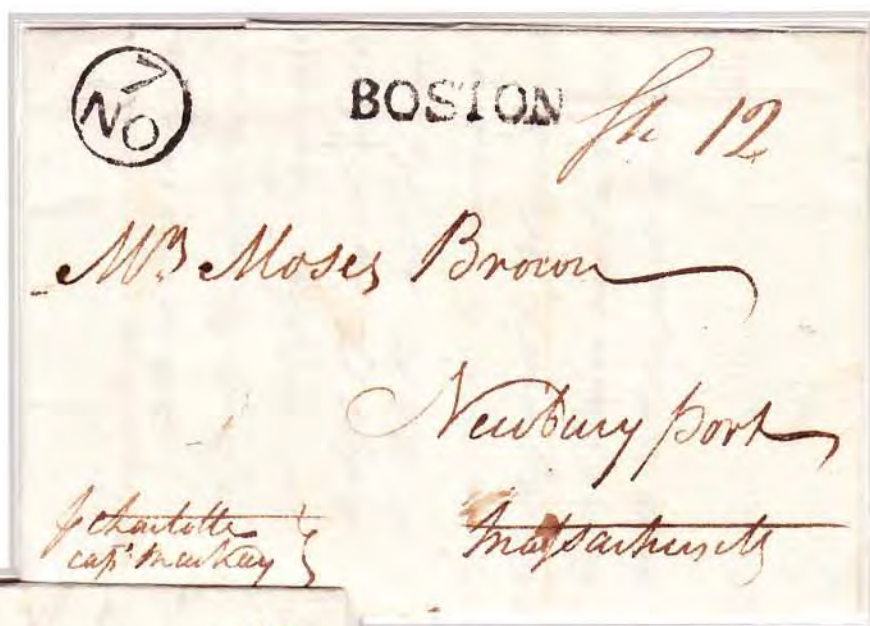 7
NO
BOSTON
Sh 12
Mr Moses Brown
Newbury port
Massachusetts
Charlotte
capt Mackay